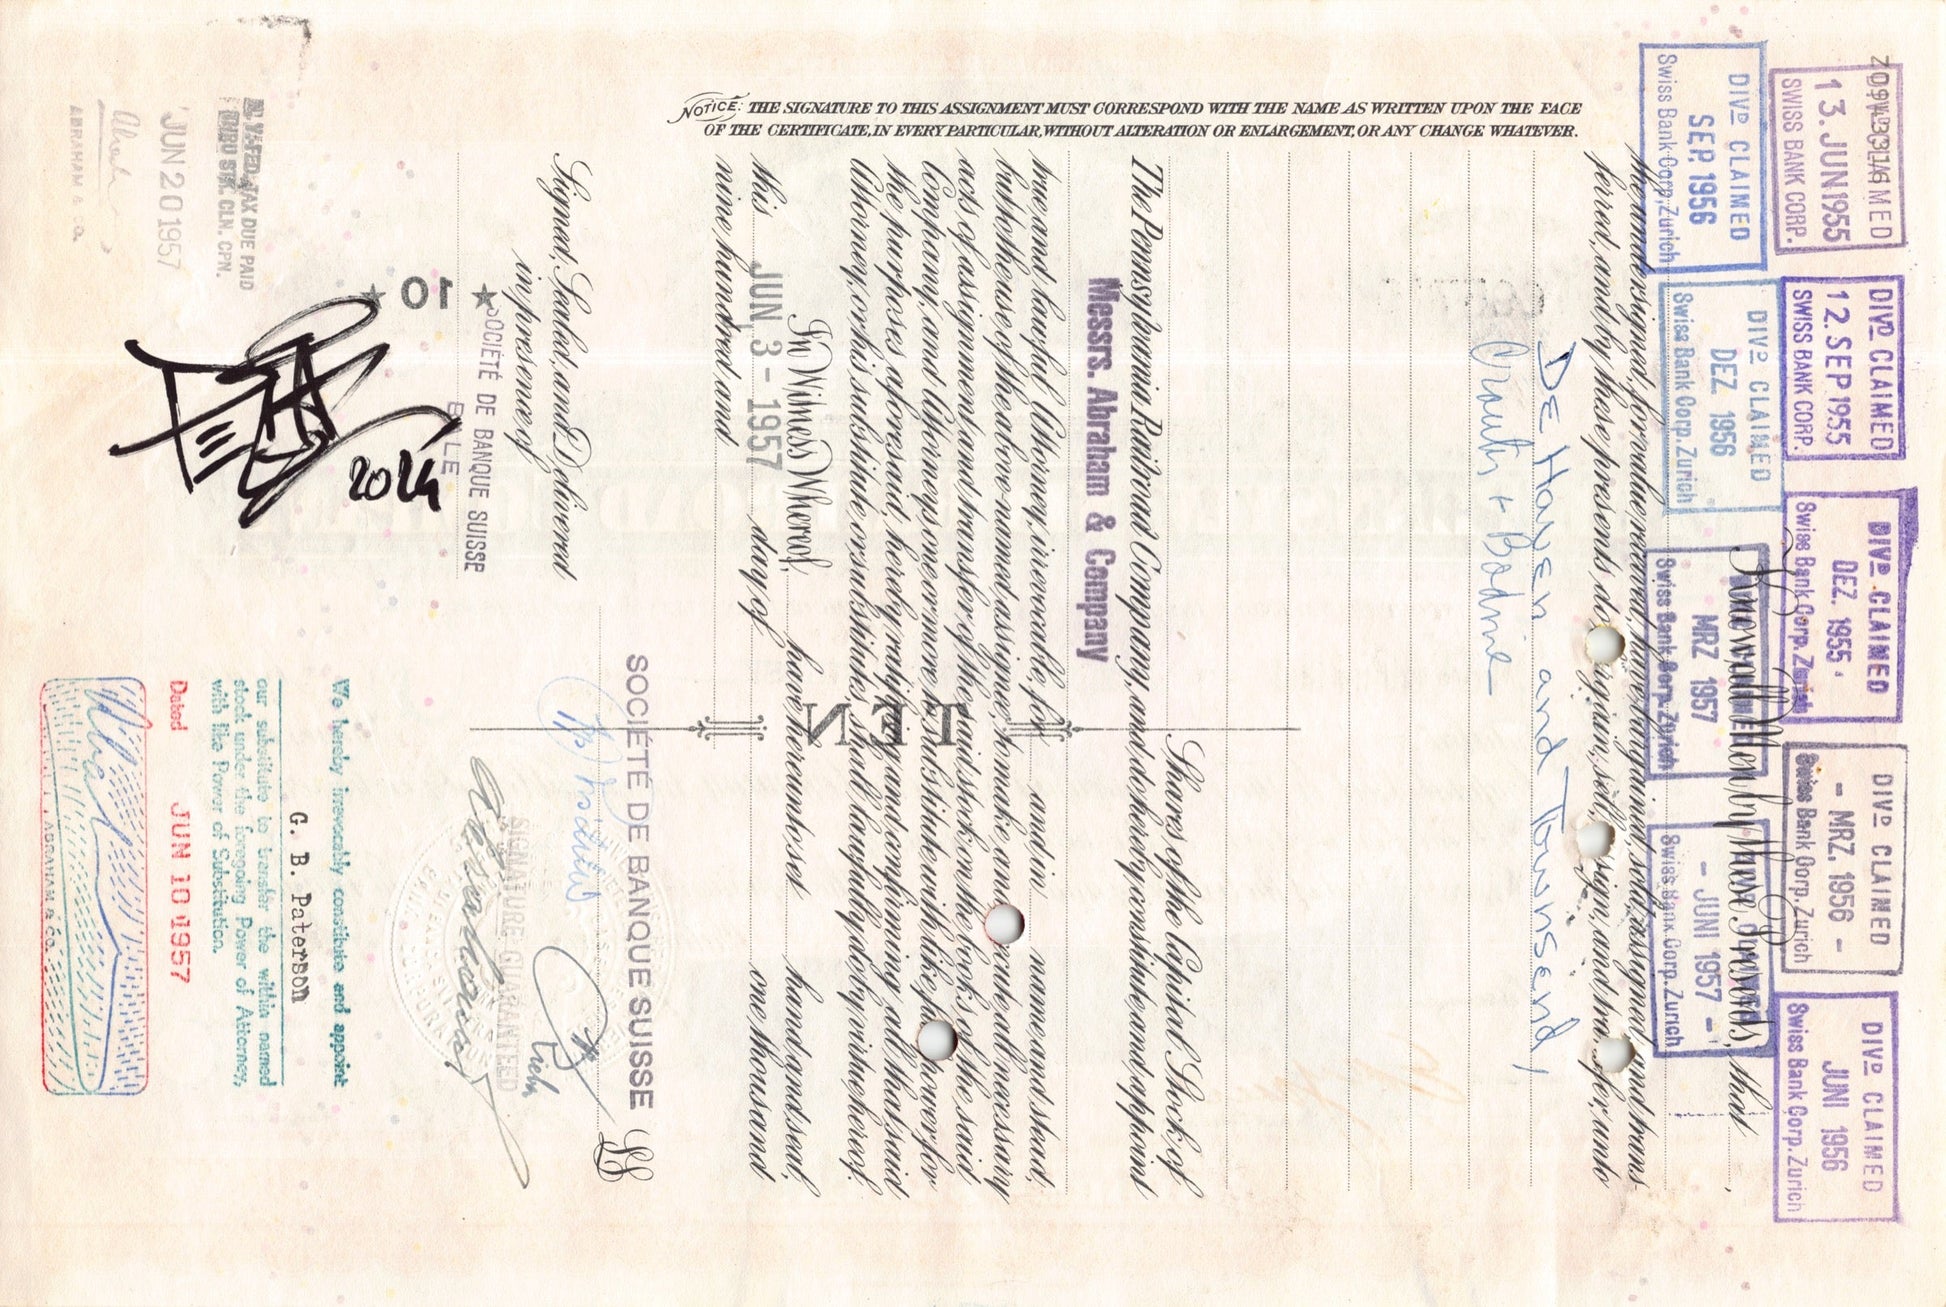 NOTICE: THE SIGNATURE TO THIS ASSIGNMENT MUST CORRESPOND WITH THE NAME AS WRITTEN UPON THE FACE
OF THE CERTIFICATE, IN EVERY PARTICULAR, WITHOUT ALTERATION OR ENLARGEMENT, OR ANY CHANGE WHATEVER.
13. JUN 1955
SWISS BANK CORP.
DIVD CLAIMED
12. SEP 1955
SWISS BANK CORP.
DIVD CLAIMED
DEZ. 1955
Swiss Bank Corp. Zurich
DIVD CLAIMED
- MRZ. 1956 -
Swiss Bank Corp. Zurich
DIVD CLAIMED
JUNI 1956
Swiss Bank Corp. Zurich
DIVD CLAIMED
SEP. 1956
Swiss Bank Corp. Zurich
DIVD CLAIMED
DEZ. 1956
Swiss Bank Corp. Zurich
MRZ 1957
Swiss Bank Corp. Zurich
- JUNI 1957 -
Swiss Bank Corp. Zurich
Know all Men by these Presents, that
the undersigned, for value received, have bargained, sold, assigned and trans-
ferred, and by these presents do bargain, sell, assign, and transfer, unto
DeHaven and Townsend,
Crouter + Bodine
Shares of the Capital Stock of
The Pennsylvania Railroad Company, and do hereby constitute and appoint
Messrs. Abraham & Company
true and lawful Attorney, irrevocable, for and in name and stead,
but to the use of the above-named assignee, to make and execute all necessary
acts of assignment and transfer of the said stock on the books of the said
Company, and Attorneys one or more to substitute with like full power for
the purposes aforesaid, hereby ratifying and confirming all that said
Attorney, or his substitute or substitutes, shall lawfully do by virtue hereof.
In Witness Whereof, have hereunto set hand and seal,
this JUN 3 - 1957 day of one thousand
nine hundred and
TEN
SOCIÉTÉ DE BANQUE SUISSE
LS
Signed, Sealed, and Delivered
in presence of
SIGNATURE GUARANTEED
SOCIÉTÉ DE BANQUE SUISSE
★ 10 ★
2024
We hereby irrevocably constitute and appoint
G. B. Paterson
our substitute to transfer the within named
stock under the foregoing Power of Attorney,
with like Power of Substitution.
Dated JUN 10 1957
ABRAHAM & CO.
N. Y. & FED. TAX DUE PAID
THRU STK. CLR. CPN.
JUN 20 1957
ABRAHAM & CO.